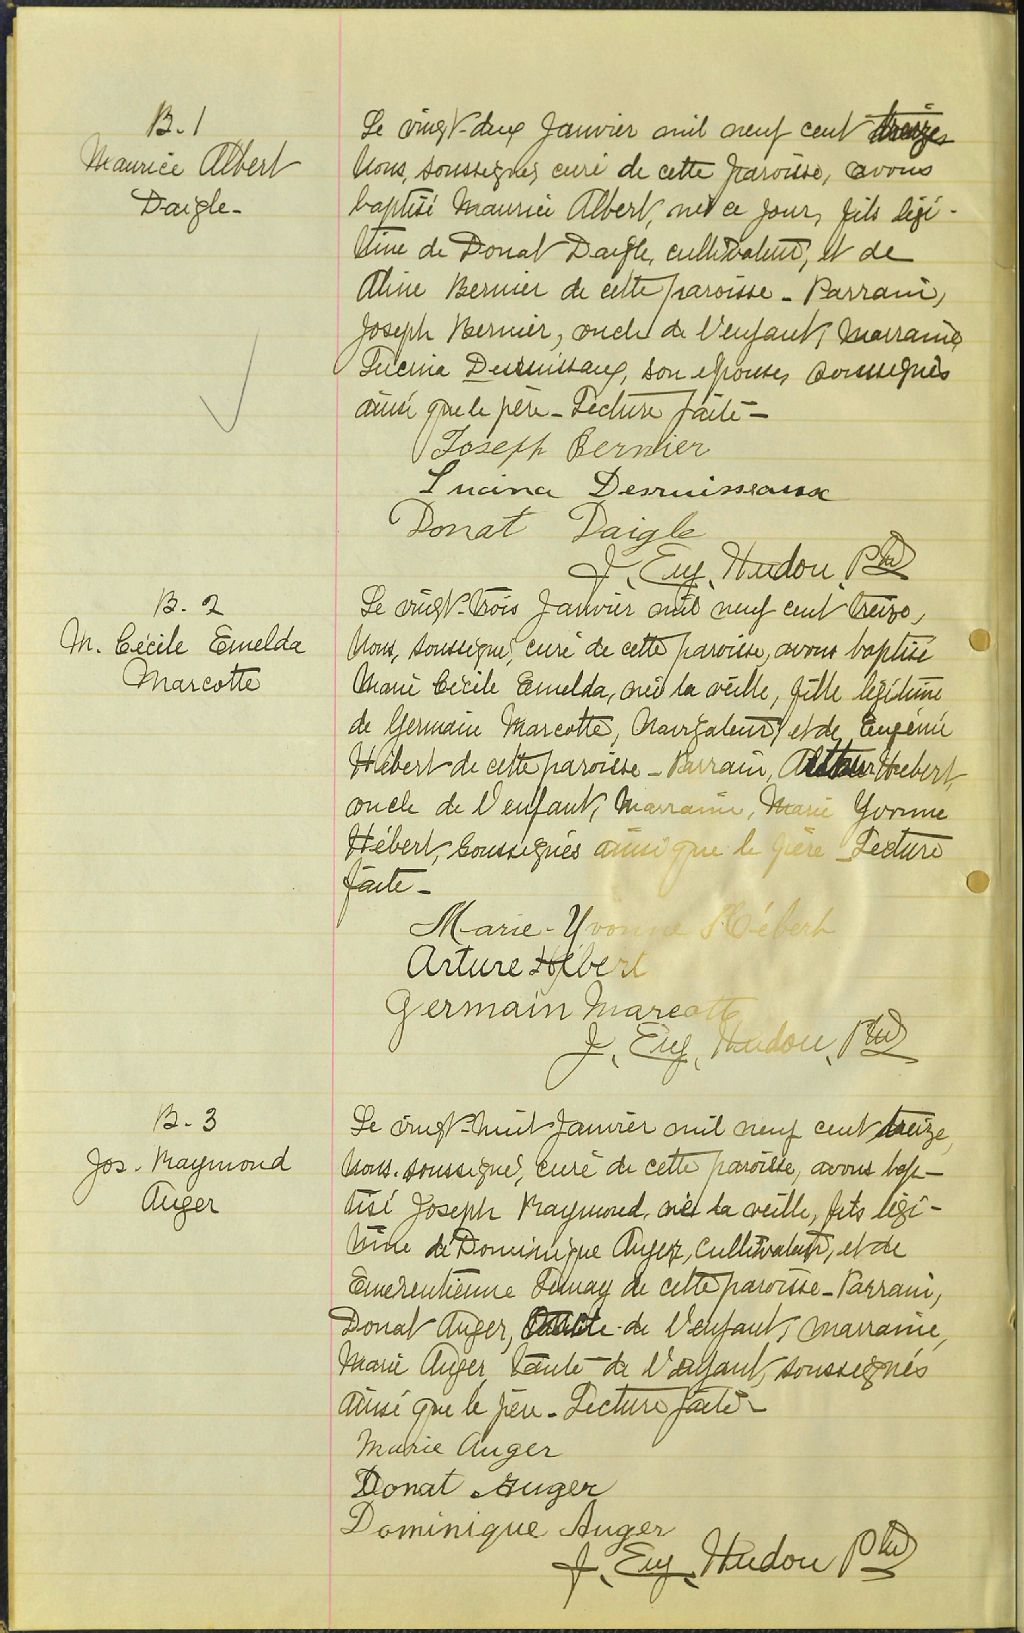 B. 1
Maurice Albert
Daigle -
Le vingt-deux Janvier mil neuf cent treize
Nous, soussigné, curé de cette paroisse, avons
baptisé Maurice Albert, né ce jour, fils légi-
time de Donat Daigle, cultivateur, et de
Aline Bernier de cette paroisse - Parrain,
Joseph Bernier, oncle de l'enfant, Marraine
Lucina Desruisseaux, son épouse, soussignés
ainsi que le père - Lecture faite -
Joseph Bernier
Lucina Desruisseaux
Donat Daigle
J. Eug. Hudon, Ptre
B. 2
M. Cécile Emelda
Marcotte
Le vingt-trois Janvier mil neuf cent treize,
Nous, soussigné, curé de cette paroisse, avons baptisé
Marie Cécile Emelda, née la veille, fille légitime
de Germain Marcotte, Navigateur, et de Eugénie
Hébert de cette paroisse - Parrain, Arthur Hébert,
oncle de l'enfant, Marraine, Marie Yvonne
Hébert, soussignés ainsi que le père - Lecture
faite -
Marie-Yvonne Hébert
Arture Hébert
Germain Marcotte
J. Eug. Hudon, Ptre
B. 3
Jos. Raymond
Auger
Le vingt-huit Janvier mil neuf cent treize,
Nous, soussigné, curé de cette paroisse, avons bap-
tisé Joseph Raymond, né la veille, fils légi-
time de Dominique Auger, Cultivateur, et de
Emerentienne Lemay de cette paroisse - Parrain,
Donat Auger, de l'enfant, marraine,
Marie Auger, tante de l'enfant, soussignés
ainsi que le père - Lecture faite -
Marie Auger
Donat Auger
Dominique Auger
J. Eug. Hudon Ptre